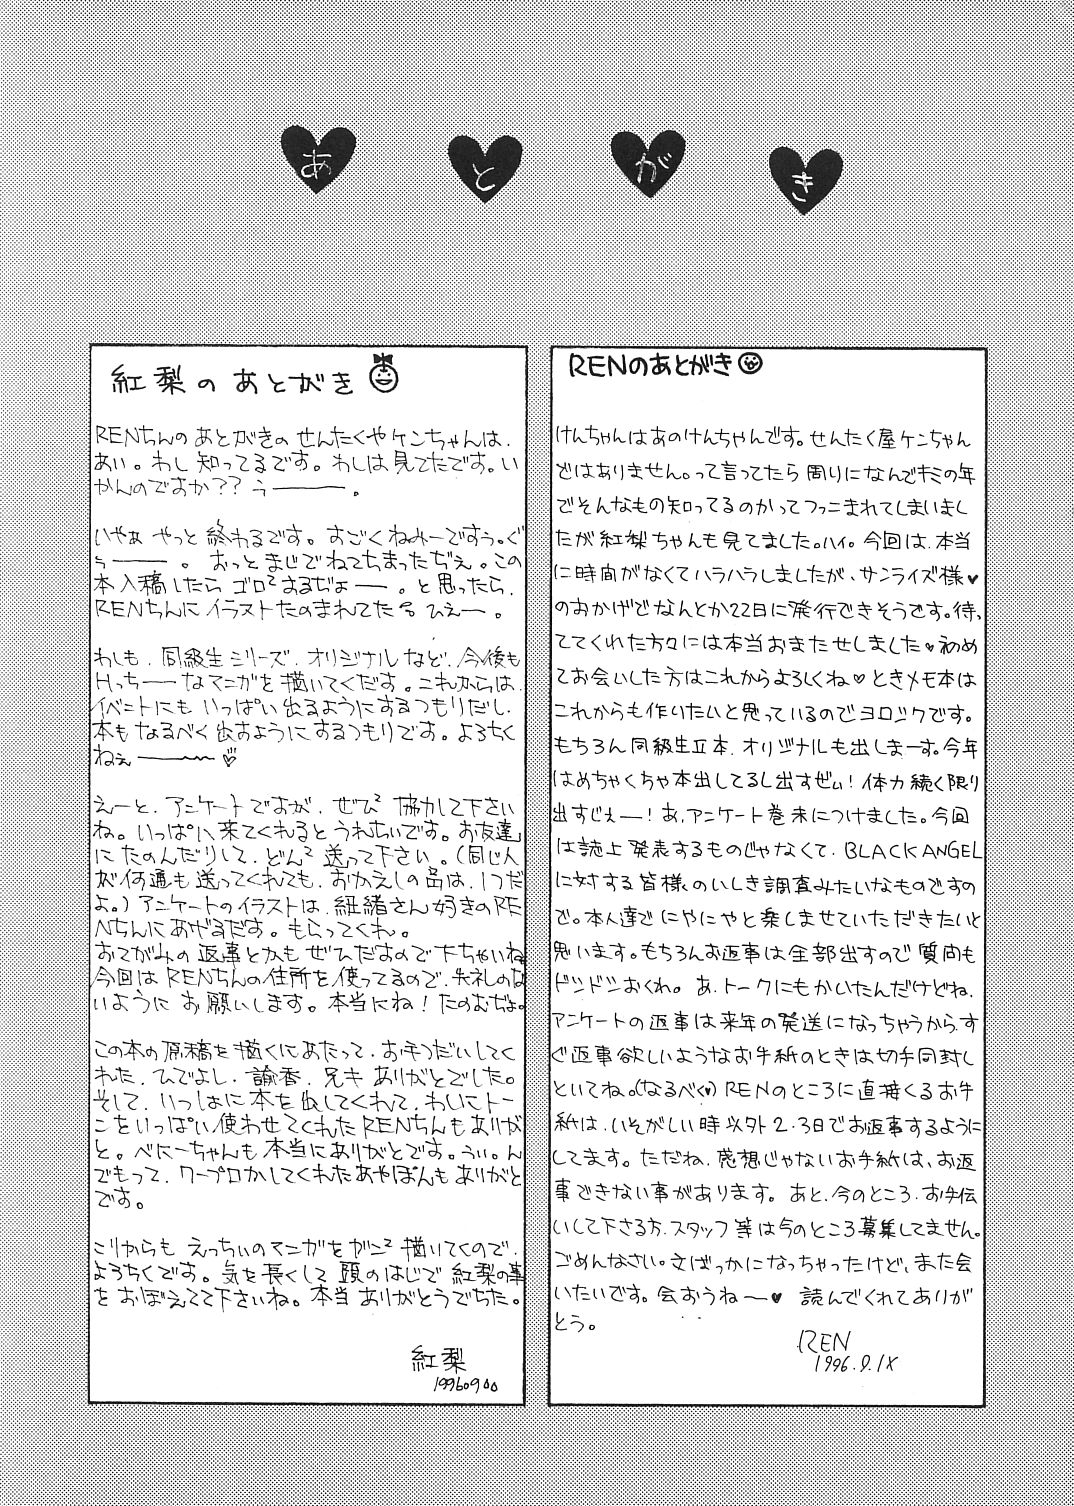 あとがき
紅梨のあとがき
RENちんのあとがきのせんたくやケンちゃんは、
あい。わし知ってるです。わしは見てたです。い
かんのですか?? うー。
いやぁ やっと終わるです。すごくねみーですぅ。ぐ
ぅー。おっとまじでねてちまったぢぇ。この
本入稿したらゴロ²するぢょー。と思ったら、
RENちんにイラストたのまれてたる ひぇー。
わしも、同級生シリーズ、オリジナルなど、今後も
Hっちーなマンガを描いてくだす。これからは、
イベントにもいっぱい出るようにするつもりだし、
本もなるべく出すようにするつもりです。よろちく
ねぇー♡
えーと、アンケートですが、ぜひ²協力して下さい
ね。いっぱい来てくれるとうれちいです。お友達
にたのんだりして、どん²送って下さい。(同じ人
が何通も送ってくれても、おかえしの品は、1つだ
よ。)アンケートのイラストは、紐緒さん好きのRE
Nちんにあげるだす。もらってくれ。
おてがみの返事とかもぜひだすので下ちゃいね
今回はRENちんの住所を使ってるので、失礼のな
いようにお願いします。本当にね!たのむぢょ。
この本の原稿を描くにあたって、お手つだいしてく
れた、ひでよし、諭香、兄キありがとでした。
そして、いっしょに本を出してくれて、わしにトー
ンをいっぱい使わせてくれたRENちんもありが
と。べにーちゃんも本当にありがとです。うぃ。ん
でもって、ワープロかしてくれたあやぽんもありがと
です。
これからもえっちぃのマンガをガン²描いてくので、
よろちくです。気を長くして頭のはじで紅梨の事
をおぼえてて下さいね。本当ありがとうでちた。
紅梨
199609
RENのあとがき
けんちゃんはあのけんちゃんです。せんたく屋ケンちゃん
ではありません。って言ってたら周りになんでキミの年
でそんなもの知ってるのかってつっこまれてしまいまし
たが紅梨ちゃんも見てました。ハイ。今回は、本当
に時間がなくてハラハラしましたが、サンライズ様♥
のおかげでなんとか22日に発行できそうです。待っ
ててくれた方々には本当おまたせしました♥初め
てお会いした方はこれからよろしくね♥ときメモ本は
これからも作りたいと思っているのでヨロシクです。
もちろん同級生II本、オリジナルも出しまーす。今年
はめちゃくちゃ本出してるし出すぜぃ!体力続く限り
出すじぇー!あ、アンケート巻末につけました。今回
は誌上発表するものじゃなくて、BLACK ANGEL
に対する皆様のいしき調査みたいなものですの
で。本人達でにやにやと楽しませていただきたいと
思います。もちろんお返事は全部出すので質問も
ドンドンおくれ。あ、トークにもかいたんだけどね、
アンケートの返事は来年の発送になっちゃうから、す
ぐ返事欲しいようなお手紙のときは切手同封し
といてね。(なるべく♥)RENのところに直接くるお手
紙は、いそがしい時以外2、3日でお返事するように
してます。ただね、感想じゃないお手紙は、お返
事できない事があります。あと、今のところ、お手伝
いして下さる方、スタッフ等は今のところ募集してません。
ごめんなさい。文ばっかになっちゃったけど、また会
いたいです。会おうねー♥ 読んでくれてありが
とう。
REN
1996.9.1X